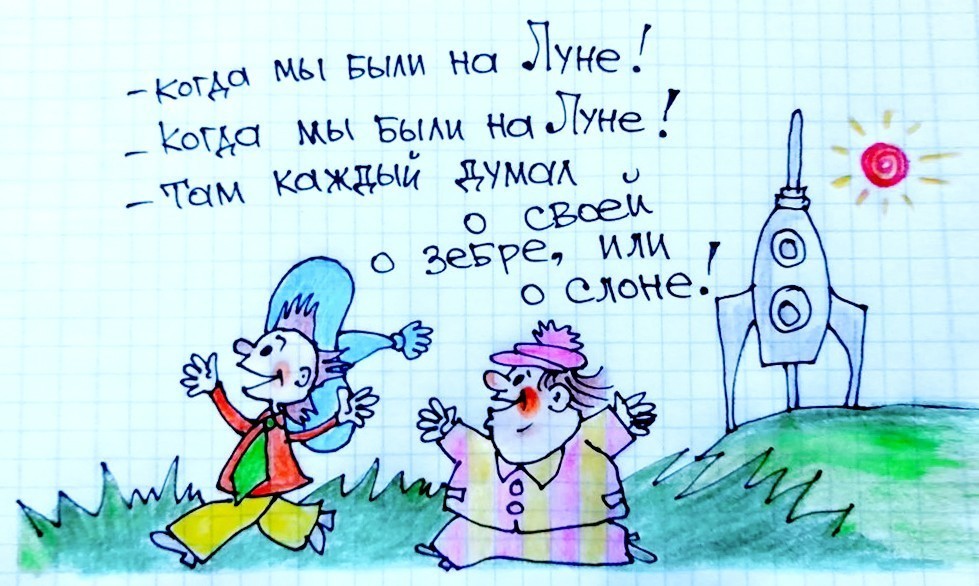 - когда мы были на Луне!
- когда мы были на Луне!
- там каждый думал
о своей
о зебре, или
о слоне!